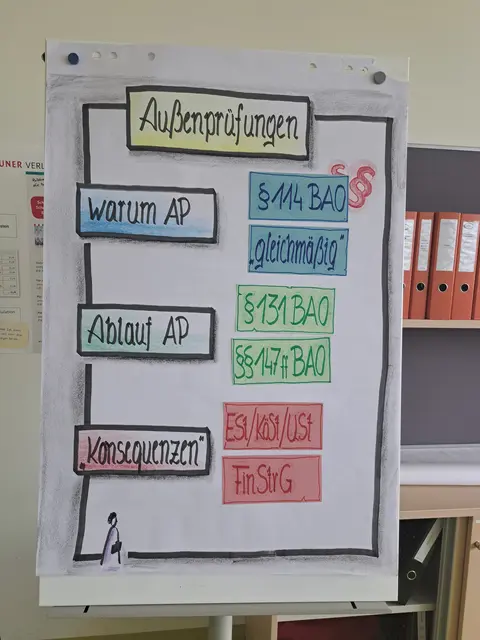 Außenprüfungen
Warum AP
§ 114 BAO
§§
„gleichmäßig"
§ 131 BAO
Ablauf AP
§§ 147ff BAO
ESt/KöSt/USt
„Konsequenzen"
FinStrG